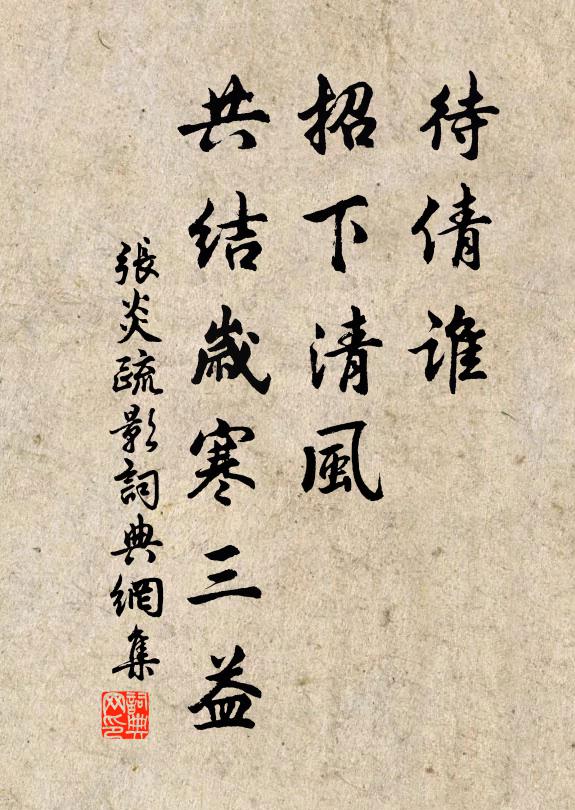 待倩誰
招下清風
共結歲寒三益
張炎疏影詞典網集
詞典
网印